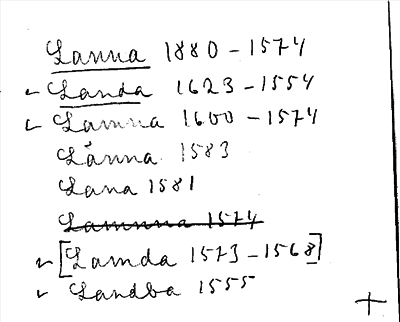 Lanna 1880 - 1574
✓ Landa 1623 - 1554
✓ Lamna 1600 - 1574
Lånna 1583
Lana 1581
Lamnna 1574
✓ [Lamda 1573 - 1568]
✓ Landba 1555
+